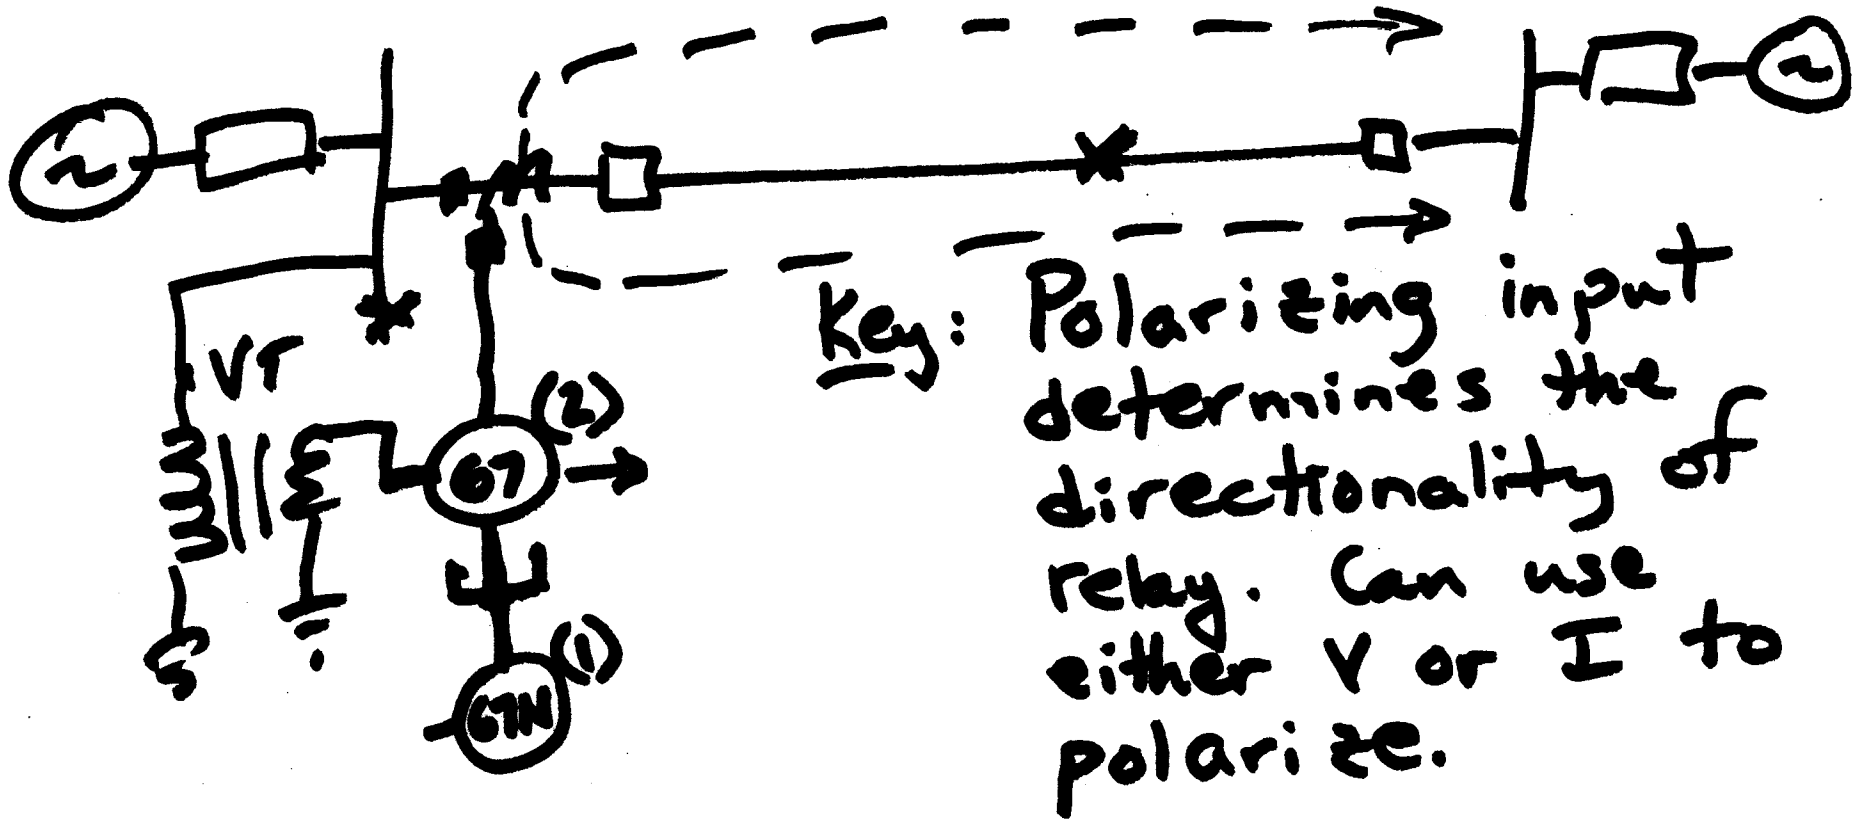 VT
(2)
67
(1)
67N
Key: Polarizing input
determines the
directionality of
relay. Can use
either V or I to
polarize.